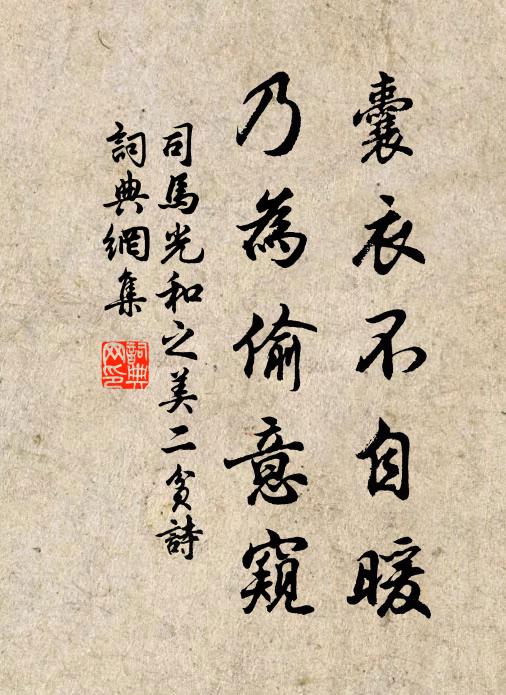 囊衣不自暖
乃為偷意窺
司馬光和之美二貪詩
詞典網集
詞典
网印